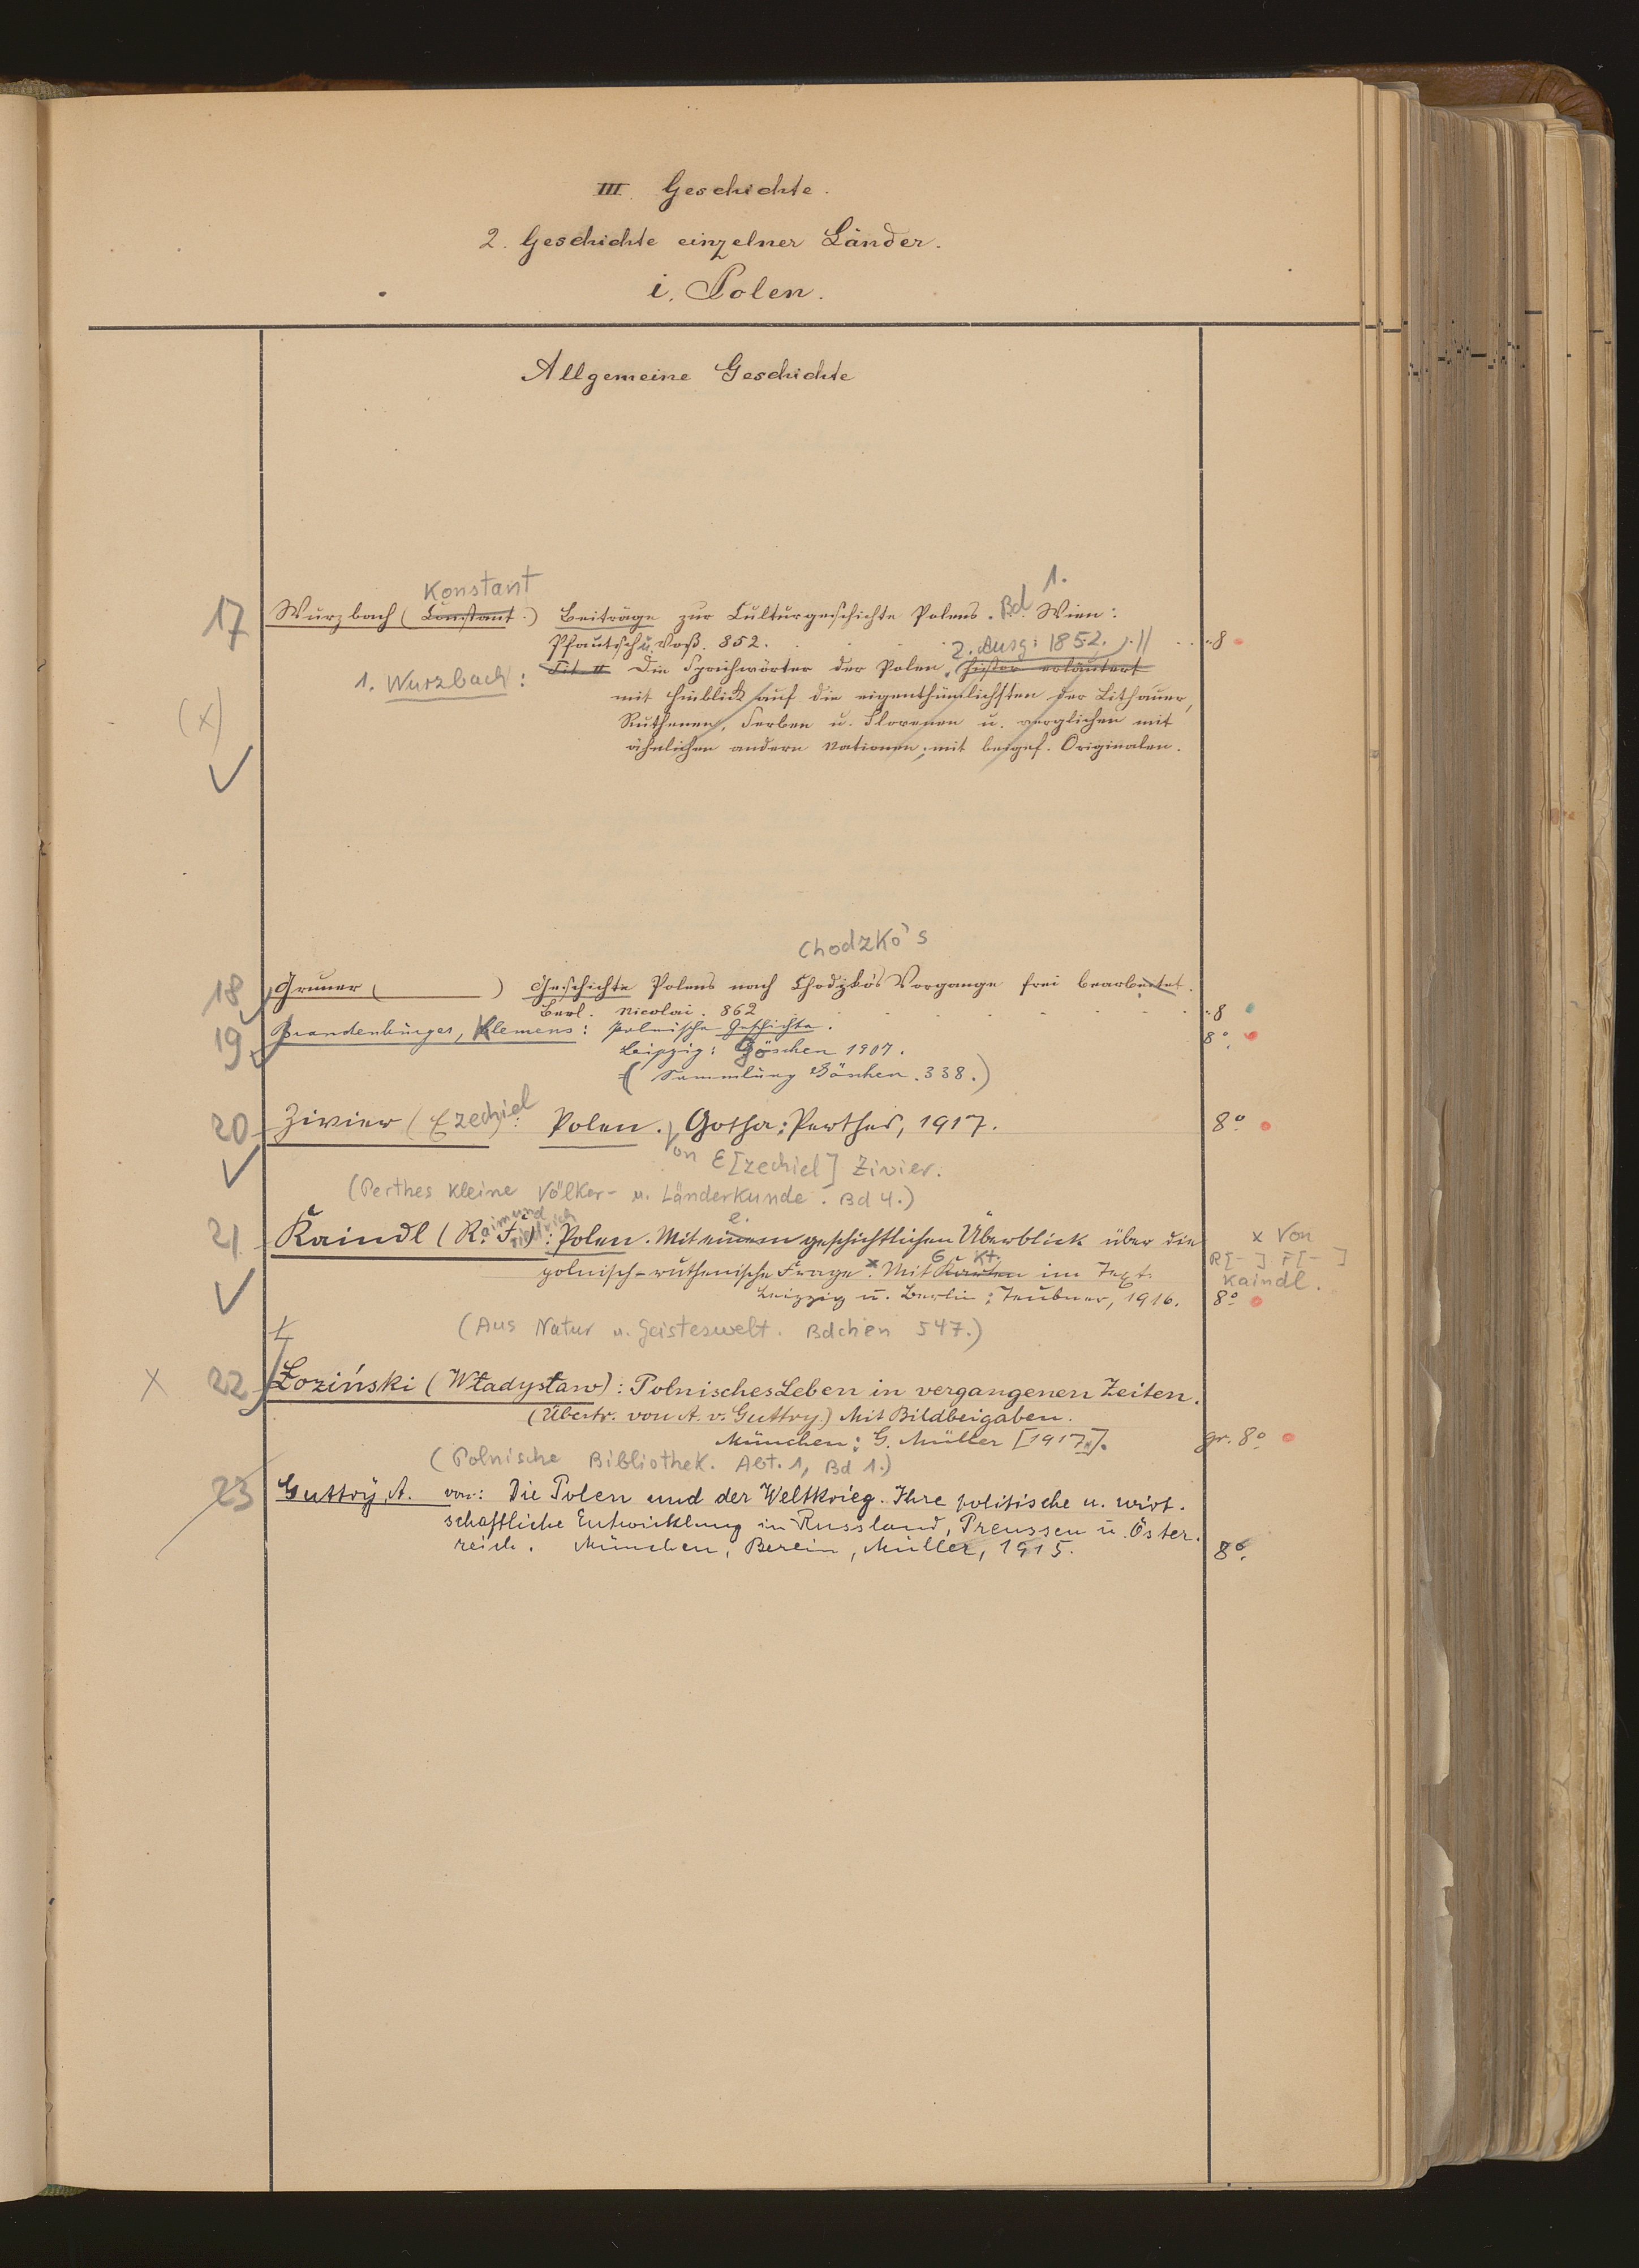 III. Geschichte.
2. Geschichte einzelner Länder.
i. Polen.
Allgemeine Geschichte
Konstant 1.
17 Wurzbach (Constant.) Beiträge zur Culturgeschichte Polens. Bd. Wien:
Pfautsch u. Voß. 852. 2. Ausg: 1852. 8
1. Wurzbach: Tit II Die Sprichwörter der Polen, histor erläutert
(x) mit Hinblick auf die eigenthümlichsten der Lithauer,
Ruthenen, Serben u. Slovenen u. verglichen mit
ähnlichen andern Nationen; mit beigef. Originalen.
Chodzko's
18 Gruner ( ) Geschichte Polens nach Chodzko's Vorgange frei bearbeitet.
Berl. Nicolai. 862 8
19 Brandenburger, Klemens: Polnische Geschichte. 8°.
Leipzig: Göschen 1907.
(Sammlung Göschen. 338.)
20 Zivier (Ezechiel): Polen. Gotha: Perthes, 1917. 8°
Von E[zechiel] Zivier.
(Perthes Kleine Völker- u. Länderkunde. Bd 4.)
21 Kaindl (Raimund Friedrich): Polen. Mit einem e. geschichtlichen Überblick über die x Von
polnisch-ruthenische Frage x. Mit 6 Karten Kt. im Text. R[-] F[-]
Kaindl.
Leipzig u. Berlin: Teubner, 1916. 8°
(Aus Natur u. Geisteswelt. Bdchen 547.)
Ł
x 22 Łoziński (Władysław): Polnisches Leben in vergangenen Zeiten.
(Übertr. von A. v. Guttry.) Mit Bildbeigaben.
München: G. Müller [1917]. gr. 8°
(Polnische Bibliothek. Abt. 1, Bd 1.)
23 Guttry, A. von: Die Polen und der Weltkrieg. Ihre politische u. wirt-
schaftliche Entwicklung in Russland, Preussen u. Öster-
reich. München, Berlin, Müller, 1915. 8°.